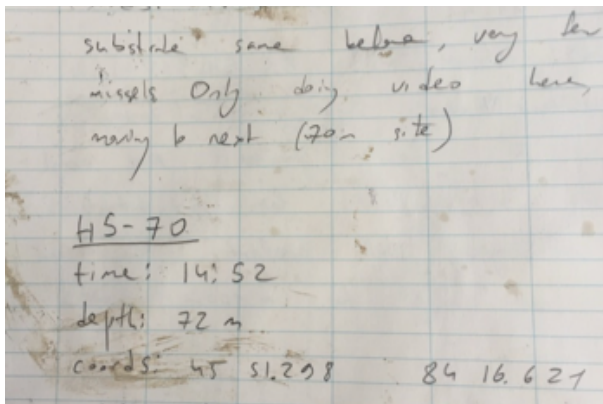 substrate same before, very few
missels Only doing video here,
moving to next (70m site)
HS-70
time: 14:52
depth: 72 m
coords: 45 51.298 84 16.621